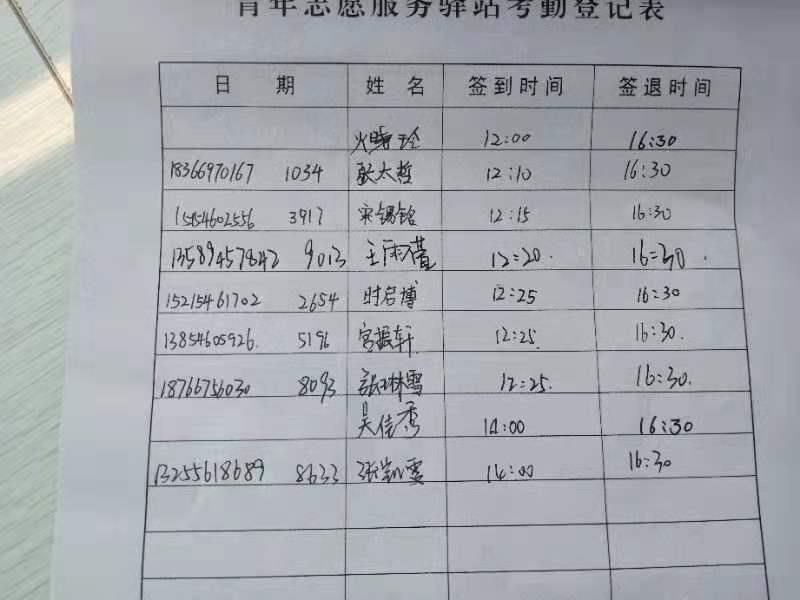 青年志愿服务驿站考勤登记表
日 期 姓 名 签到时间 签退时间
12:00 16:30
18366970167 1034 张太哲 12:10 16:30
15154602556 3917 宋锡铭 12:15 16:30
13589457842 9013 王雨萱 12:20. 16:30.
15215461702 2654 时启博 12:25 16:30
13854605926. 5196 宫振轩 12:25. 16:30.
18766756030 8093 张琳雪 12:25. 16:30.
吴佳秀 14:00 16:30
13255618689 8633 张凯雯 14:00 16:30